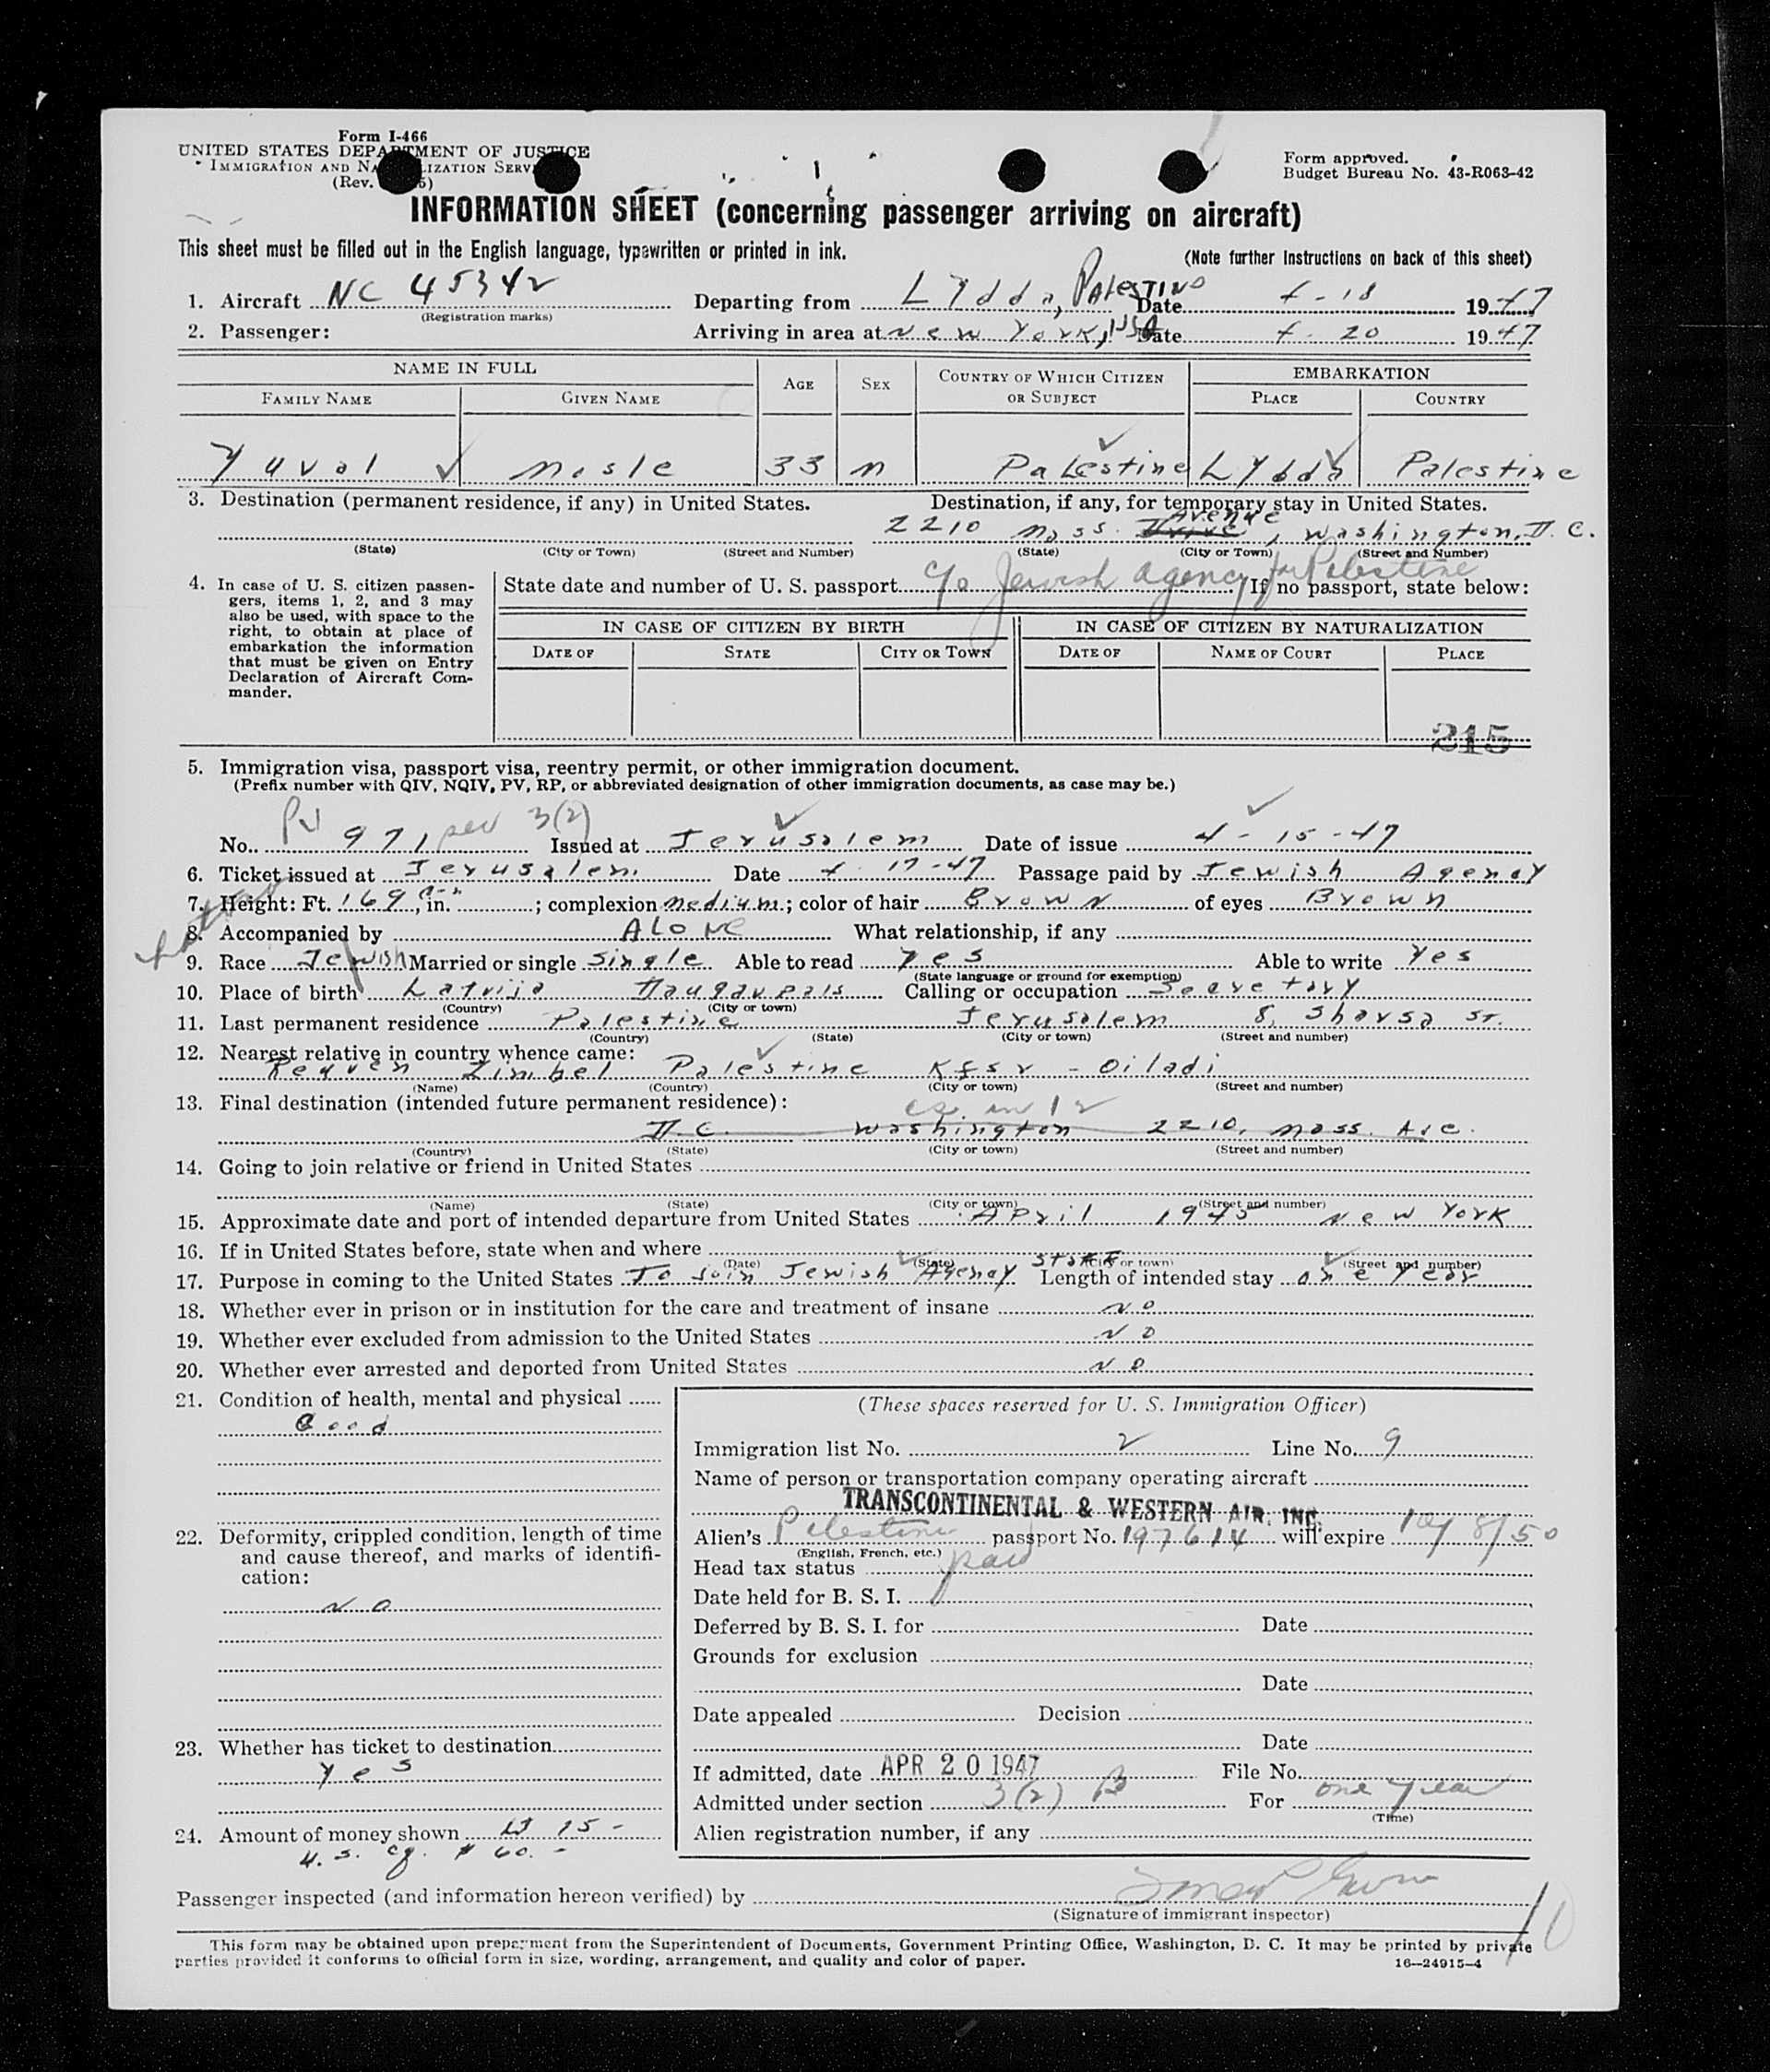 Form I-466
UNITED STATES DEPARTMENT OF JUSTICE
IMMIGRATION AND NATURALIZATION SERV
(Rev. 5)
Form approved.
Budget Bureau No. 43-R063-42
INFORMATION SHEET (concerning passenger arriving on aircraft)
This sheet must be filled out in the English language, typewritten or printed in ink.
(Note further instructions on back of this sheet)
1. Aircraft NC 45342 Departing from Lydda, Palestine Date 4-18 1947
(Registration marks)
2. Passenger: Arriving in area at New York, USA Date 4-20 1947
NAME IN FULL AGE SEX COUNTRY OF WHICH CITIZEN OR SUBJECT EMBARKATION
FAMILY NAME GIVEN NAME PLACE COUNTRY
Yuval Mosle 33 M Palestine Lydda Palestine
3. Destination (permanent residence, if any) in United States. Destination, if any, for temporary stay in United States.
2210 Mass. Avenue, Washington, D.C.
(State) (City or Town) (Street and Number) (State) (City or Town) (Street and Number)
4. In case of U. S. citizen passengers, items 1, 2, and 3 may also be used, with space to the right, to obtain at place of embarkation the information that must be given on Entry Declaration of Aircraft Commander.
State date and number of U. S. passport c/o Jewish Agency for Palestine If no passport, state below:
IN CASE OF CITIZEN BY BIRTH IN CASE OF CITIZEN BY NATURALIZATION
DATE OF STATE CITY OR TOWN DATE OF NAME OF COURT PLACE
215
5. Immigration visa, passport visa, reentry permit, or other immigration document.
(Prefix number with QIV, NQIV, PV, RP, or abbreviated designation of other immigration documents, as case may be.)
No. PV 971 sec 3(2) Issued at Jerusalem Date of issue 4-15-47
6. Ticket issued at Jerusalem Date 4-17-47 Passage paid by Jewish Agency
7. Height: Ft. 169, in. ; complexion medium; color of hair Brown of eyes Brown
8. Accompanied by ALONE What relationship, if any
9. Race Jewish Married or single single Able to read yes Able to write Yes
(State language or ground for exemption)
10. Place of birth Latvija Daugavpils Calling or occupation Secretary
(Country) (City or town)
11. Last permanent residence Palestine Jerusalem 8, Sharsa St.
(Country) (State) (City or town) (Street and number)
12. Nearest relative in country whence came:
Reuven Zimbel Palestine Kfar - Giladi
(Name) (Country) (City or town) (Street and number)
13. Final destination (intended future permanent residence):
D.C. Washington 2210, Mass. Ave.
(Country) (State) (City or town) (Street and number)
14. Going to join relative or friend in United States
(Name) (State) (City or town) (Street and number)
15. Approximate date and port of intended departure from United States April 1948 New York
16. If in United States before, state when and where
(Date) (State) (City or town) (Street and number)
17. Purpose in coming to the United States To join Jewish Agency Staff Length of intended stay one year
18. Whether ever in prison or in institution for the care and treatment of insane NO
19. Whether ever excluded from admission to the United States NO
20. Whether ever arrested and deported from United States NO
21. Condition of health, mental and physical
Good
22. Deformity, crippled condition, length of time and cause thereof, and marks of identification:
NO
23. Whether has ticket to destination
Yes
24. Amount of money shown 15-
U.S. cy. $ 60.-
(These spaces reserved for U. S. Immigration Officer)
Immigration list No. 2 Line No. 9
Name of person or transportation company operating aircraft
TRANSCONTINENTAL & WESTERN AIR, INC.
Alien's Palestine passport No. 197614 will expire 10/8/50
(English, French, etc.)
Head tax status paid
Date held for B. S. I.
Deferred by B. S. I. for Date
Grounds for exclusion
Date
Date appealed Decision
Date
If admitted, date APR 20 1947 File No.
Admitted under section 3(2) B For one year
(Time)
Alien registration number, if any
Passenger inspected (and information hereon verified) by
(Signature of immigrant inspector)
This form may be obtained upon prepayment from the Superintendent of Documents, Government Printing Office, Washington, D. C. It may be printed by private
parties provided it conforms to official form in size, wording, arrangement, and quality and color of paper.
16—24915-4